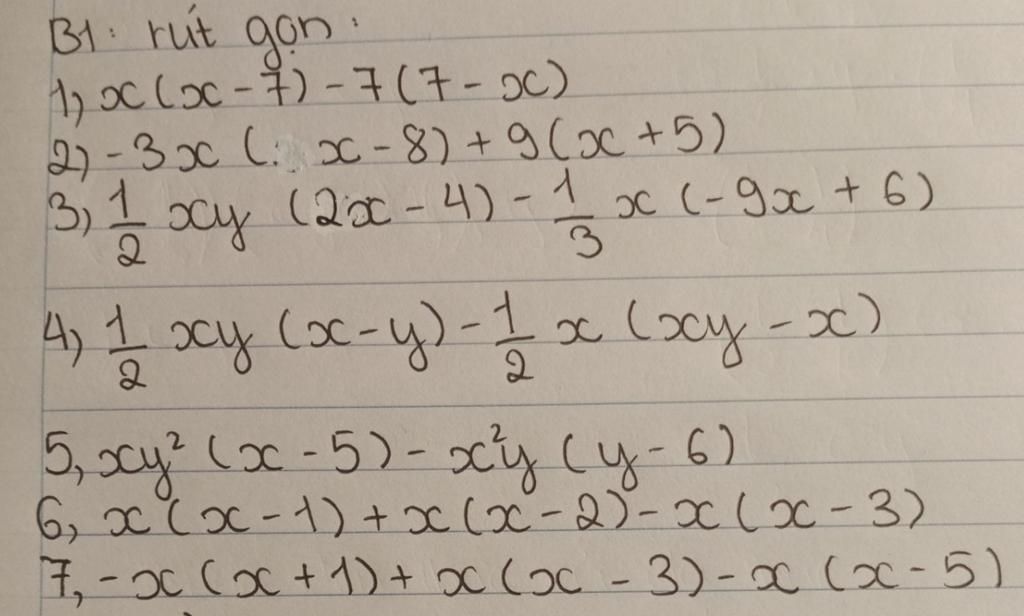 B1: rút gọn:
1, x(x-7)-7(7-x)
2) -3x (. x-8)+9(x+5)
3) 1/2 xy (2x-4) - 1/3 x (-9x+6)
4, 1/2 xy (x-y) - 1/2 x (xy-x)
5, xy² (x-5) - x²y (y-6)
6, x(x-1)+x(x-2)-x(x-3)
7, -x(x+1)+x(x-3)-x(x-5)